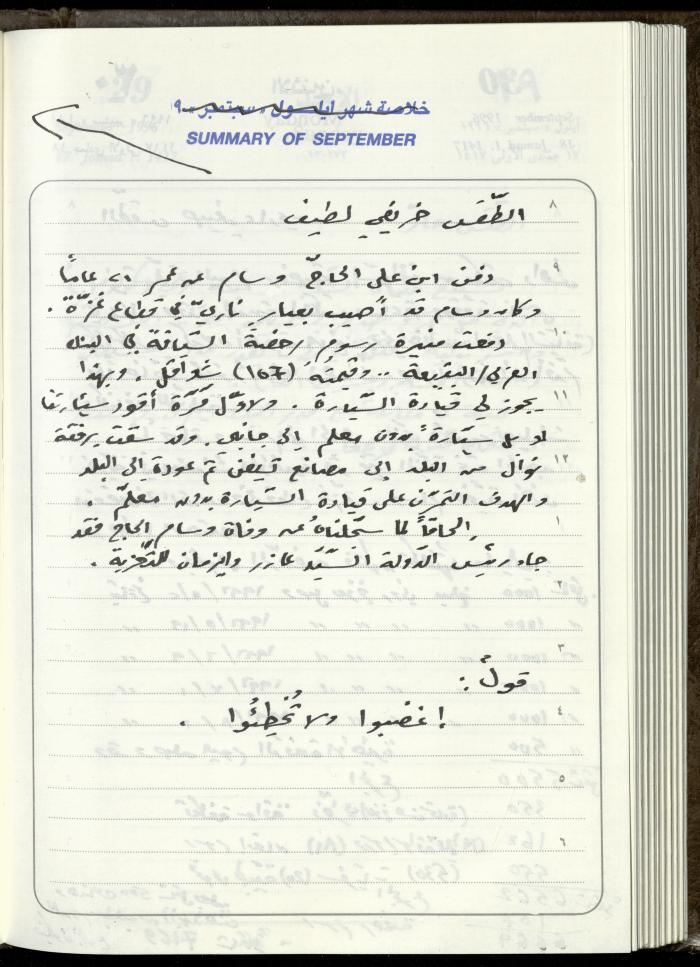 خلاصة شهر ايلول - سبتمبر ٩
SUMMARY OF SEPTEMBER
٨ الطّقس خريفي لطيف
٩
دفن ابن علي الحاجّ وسام عن عمر ٢١ عاماً
وكان وسام قد أُصيب بعيارٍ ناريّ في قطاع غزّة .
دفعت منيرة رسوم رخصة السّياقة في البنك
العربي/البقيعة .. وقيمتُهُ (167) شواقل . وبهذا
١١ يجوز لي قيادة السّيارة . ولأوّل مَرّة أقود سيّارتنا
بدون معلم إلى جانبي . وقد سقت برفقة
١٢ نوال من البلد إلى مصانع تيفن ثمّ عودة إلى البلد
والهدف التمرّن على قيادة السّيارة بدون معلّم .
١ إلحاقاً لما سجّلناهُ عن وفاة وسام الحاج فقد
جاء رئيس الدّولة السّيّد عازر وايزمان للتّعزية .
٢
٣
قولٌ :
٤ إغضبوا ولا تُخْطِئُوا .
٥
٦